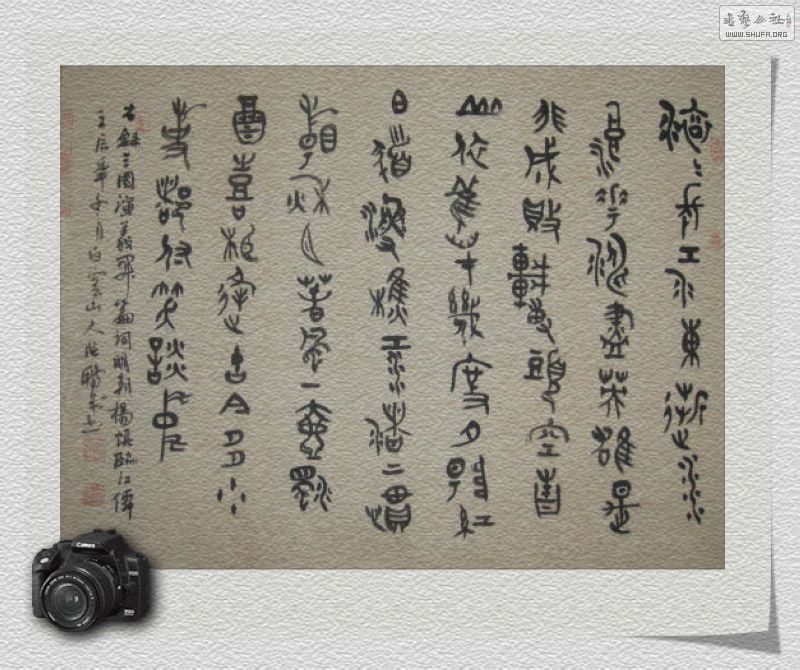 滾〻長江東逝水
浪花淘盡英雄是
非成敗轉頭空青
山依舊在幾度夕陽紅
白髮漁樵江渚上慣
看秋月春風一壺濁
酒喜相逢古今多少
事都付笑談中
右錄三國演義開篇詞明朝楊慎臨江僊
壬辰年冬月白雲山人
書藝公社
WWW.SHUFA.ORG
Canon